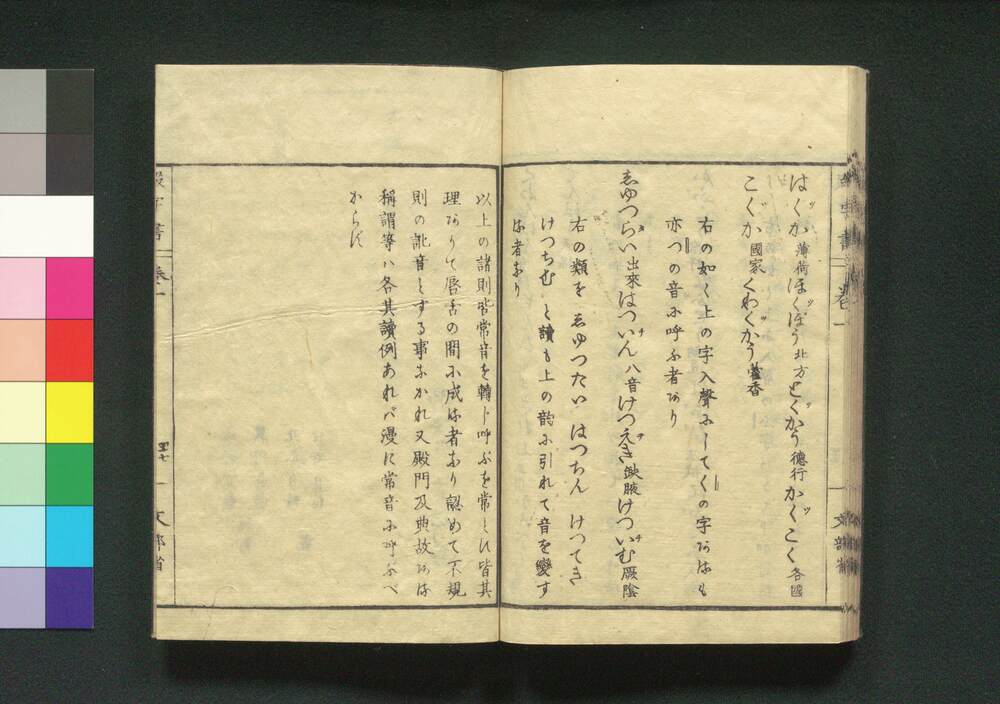 はくか 薄荷 ほくぼう 北方 とくかう 徳行 かくこく 各國
こくか 國家 くわくかう 藿香
右の如く上の字入聲にしてくの字あるも
亦つの音に呼ふ者あり
しゆつらい 出來 はついん 八音 けつえき 缺腋 けついむ 厥陰
右の類を しゆつたい はつちん けつてき
けつちむ と讀も上の韵に引れて音を變す
る者なり
以上の諸則皆常音を轉し呼ぶを常とし皆其
理ありて唇舌の間に成る者なり認めて不規
則の訛音とする事なかれ又殿門及典故ある
稱謂等ハ各其讀例あれバ漫に常音に呼ふべ
からず
綴字書 卷一
四十七
文部省
卷一
文部省